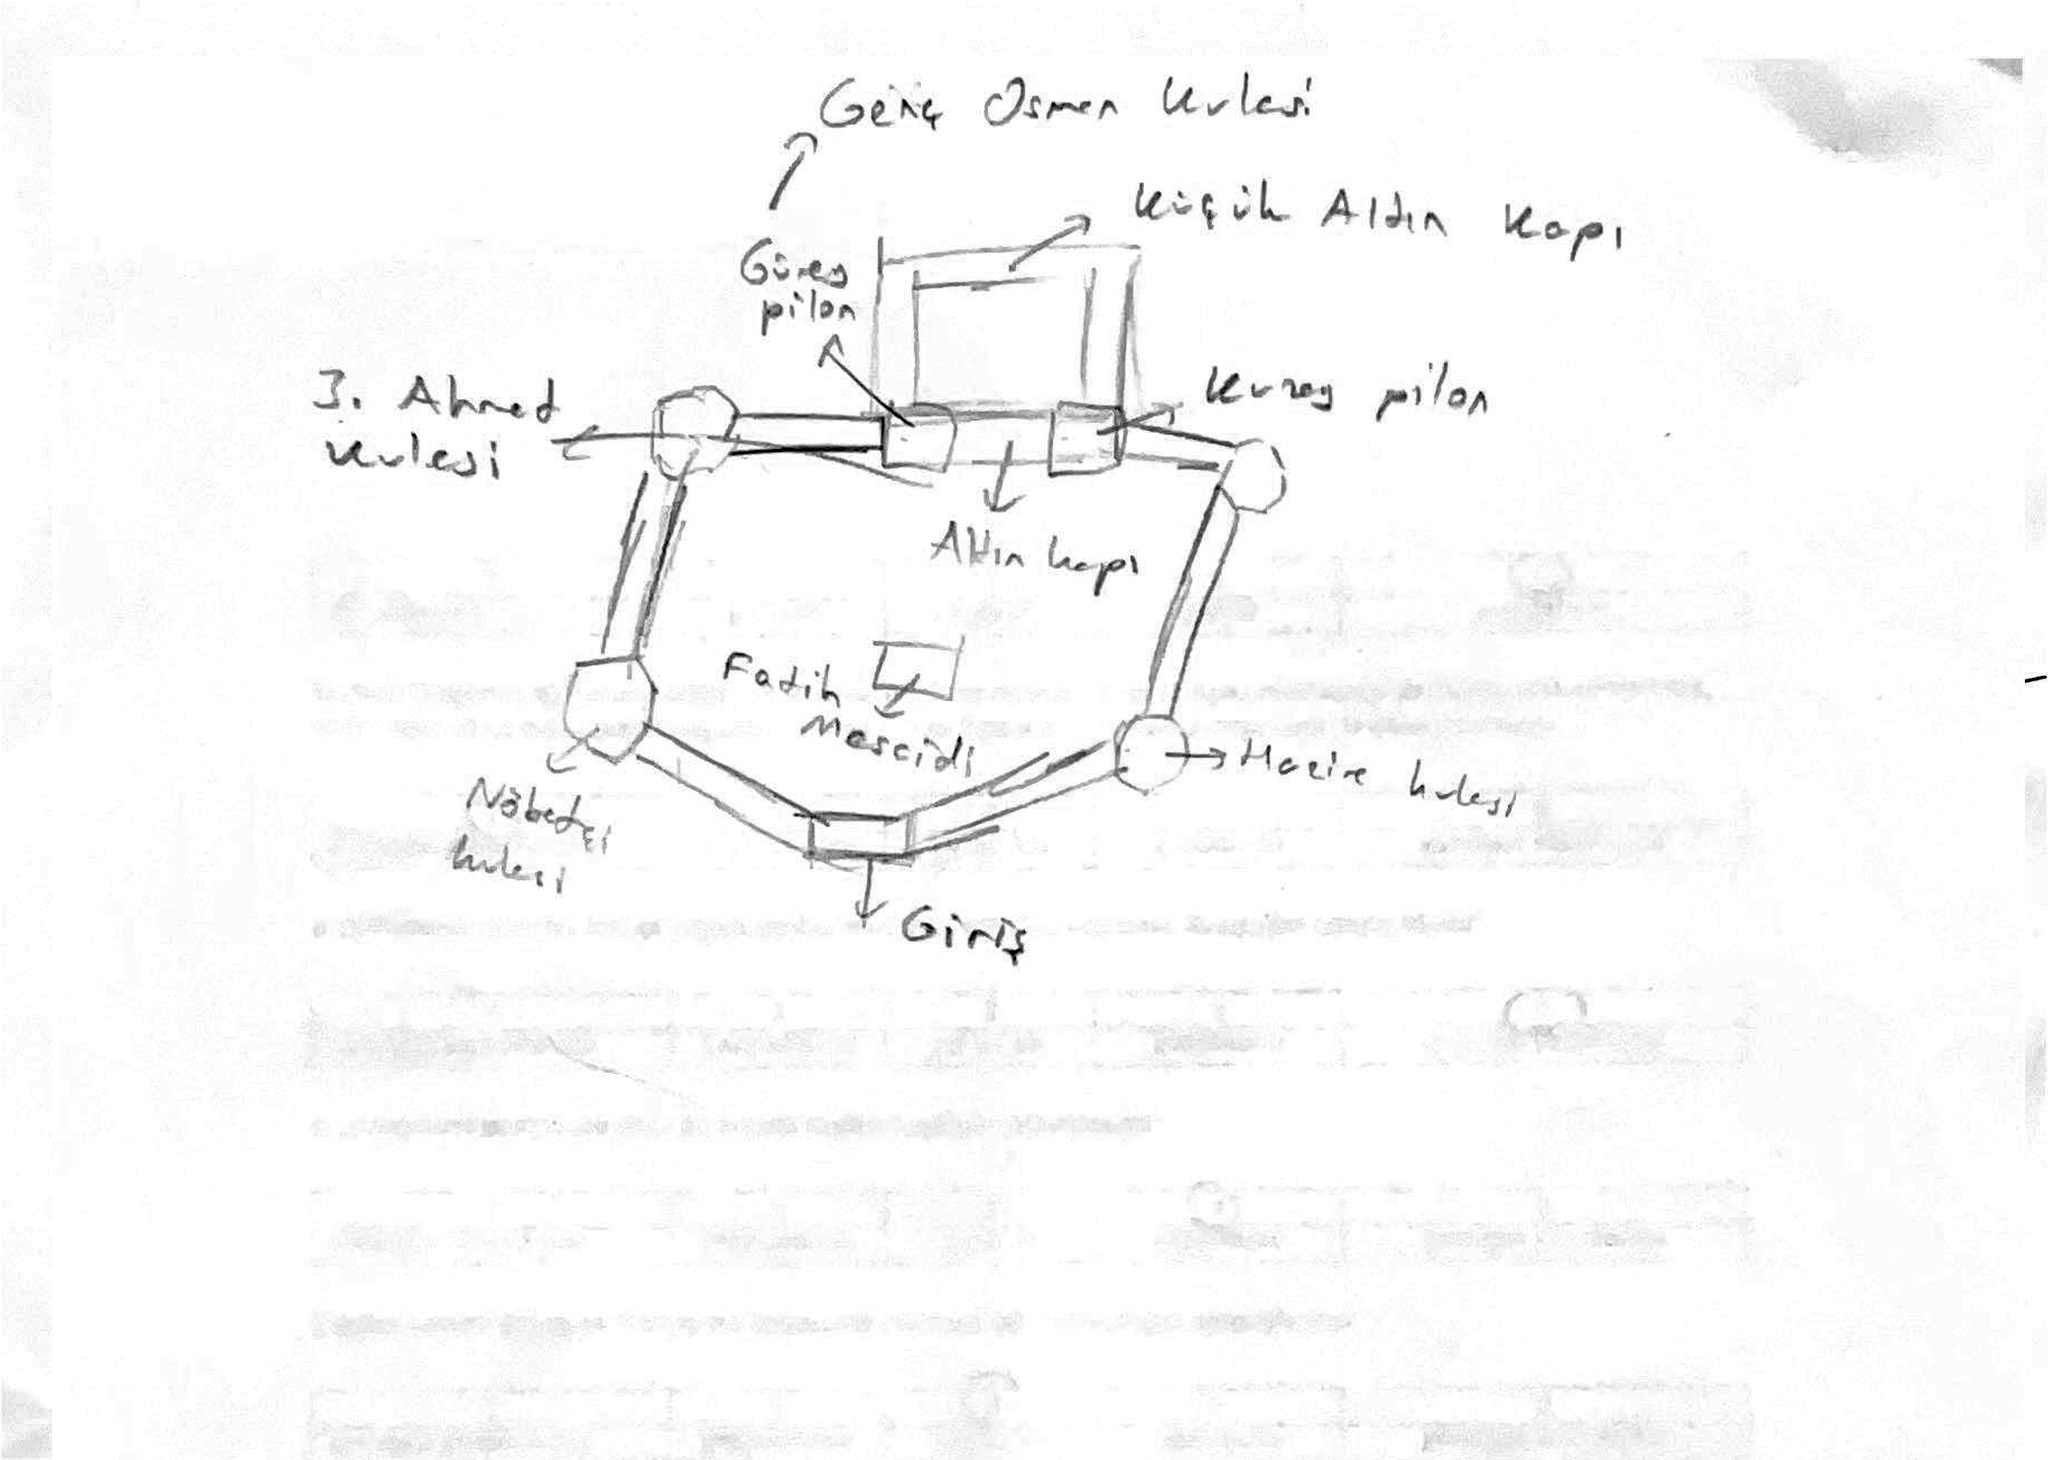 Genç Osman Kulesi
Küçük Altın Kapı
Güney
pilon
3. Ahmed
Kulesi
Kuzey pilon
Altın kapı
Fatih
Mescidi
Hazine kulesi
Nöbetçi
kulesi
Giriş